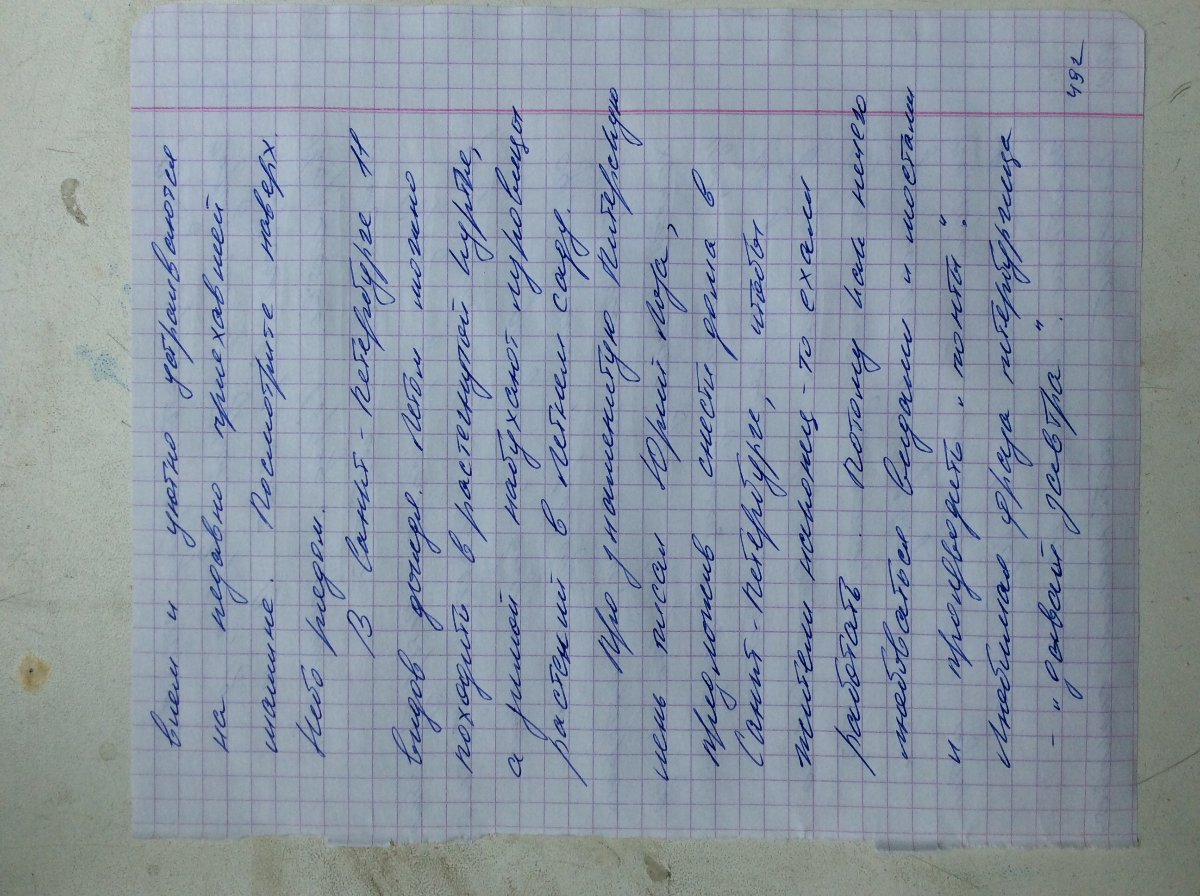 внем и уютно устраиваются
на недавно приехавшей
машине. Посмотрите наверх.
Небо рядом.
В Санкт-Петербурге 14
видов дождя. Летом можно
походить в растегнутой куртке,
а зимой набухают луковицы
растений в Летнем саду.
Про знаменитую Питерскую
лень писал Юрий Лоза,
предложив снести дома в
Санкт-Петербурге, чтобы
жители наконец-то ехали
работать. Потому как нечего
любоваться видами и мостами
и производить "понты".
Любимая фраза петербуржца
- "давай завтра".
492